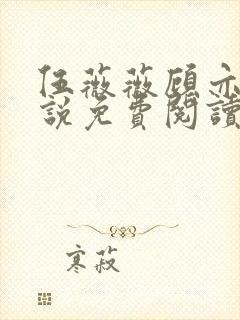 伍薇薇顾亦
說免費閱讀
寒菽